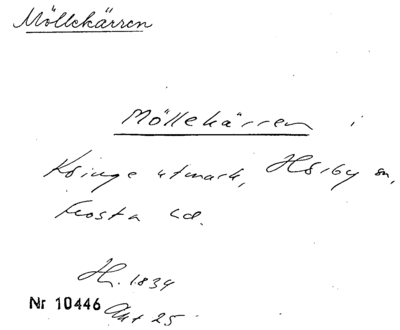 Möllekärren
Möllekärren i
Köinge utmark, Hörby sn,
Frosta hd.
H. 1834
Nr 10446 Akt 25